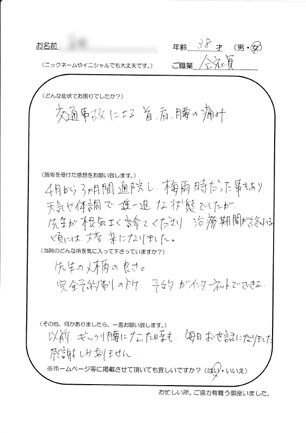 お名前
年齢 38才 (男・女)
(ニックネームやイニシャルでも大丈夫です。)
ご職業 会社員
(どんな症状でお困りでしたか?)
交通事故による首、肩、腰の痛み
(施術を受けた感想をお願い致します。)
4月から3カ月間通院し、梅雨時だった事もあり
天気や体調で一進一退な状態でしたが、
先生が根気よく診てくださり 治療期間が終わる
頃には大分楽になりました。
(当院のどんな所を気に入って下さっていますか?)
先生の人柄の良さ。
完全予約制の所 予約がインターネットでできる。
(その他、何かありましたら、一言お願い致します。)
以前 ギックリ腰になった時も、毎回お世話になりました
感謝しかありません
※ホームページ等に掲載させて頂いても宜しいですか? (はい・いいえ)
お忙しい所、ご協力有難う御座いました。